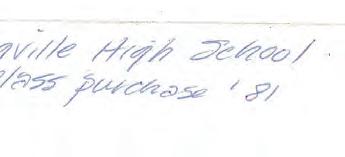 aville High School
class purchase '81